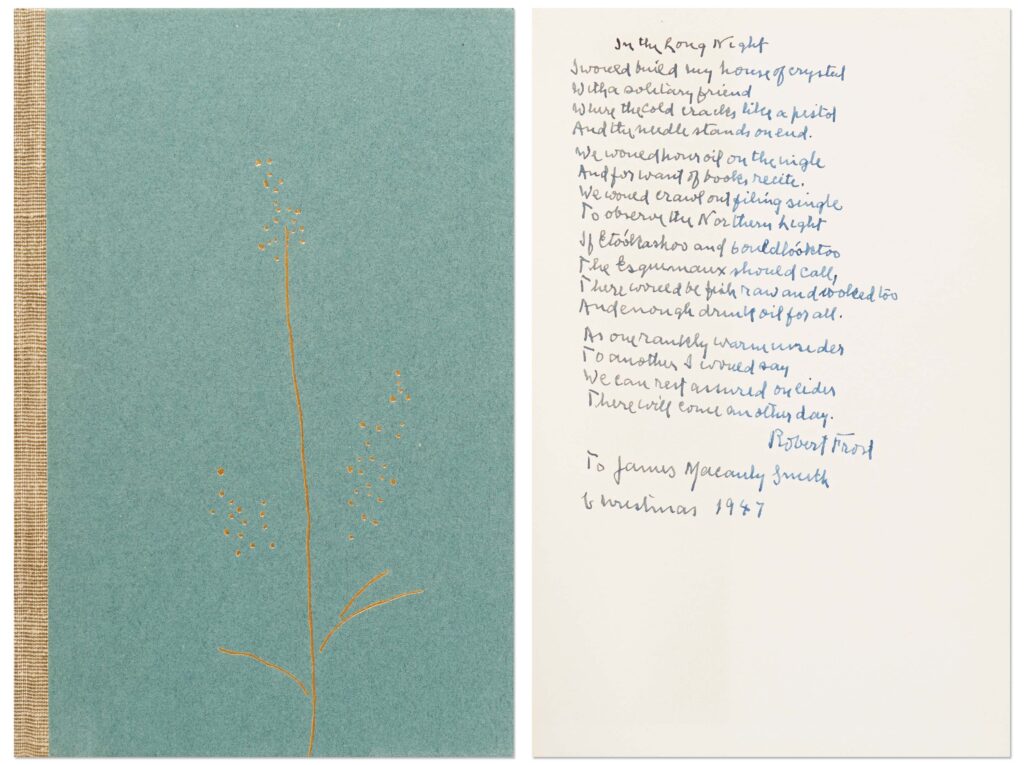 In the Long Night
I would build my house of crystal
With a solitary friend
Where the cold cracks like a pistol
And the needle stands on end.
We would pour oil on the ingle
And for want of books recite.
We would crawl out filing single
To observe the Northern Light
If Etookashoo and Couldlooktoo
The Esquimaux should call,
There would be fish raw and cooked too
And enough drink oil for all.
As one rankly warm insider
To another I would say
We can rest assured on eider
There will come another day.
Robert Frost
To James Smith
Christmas 1947